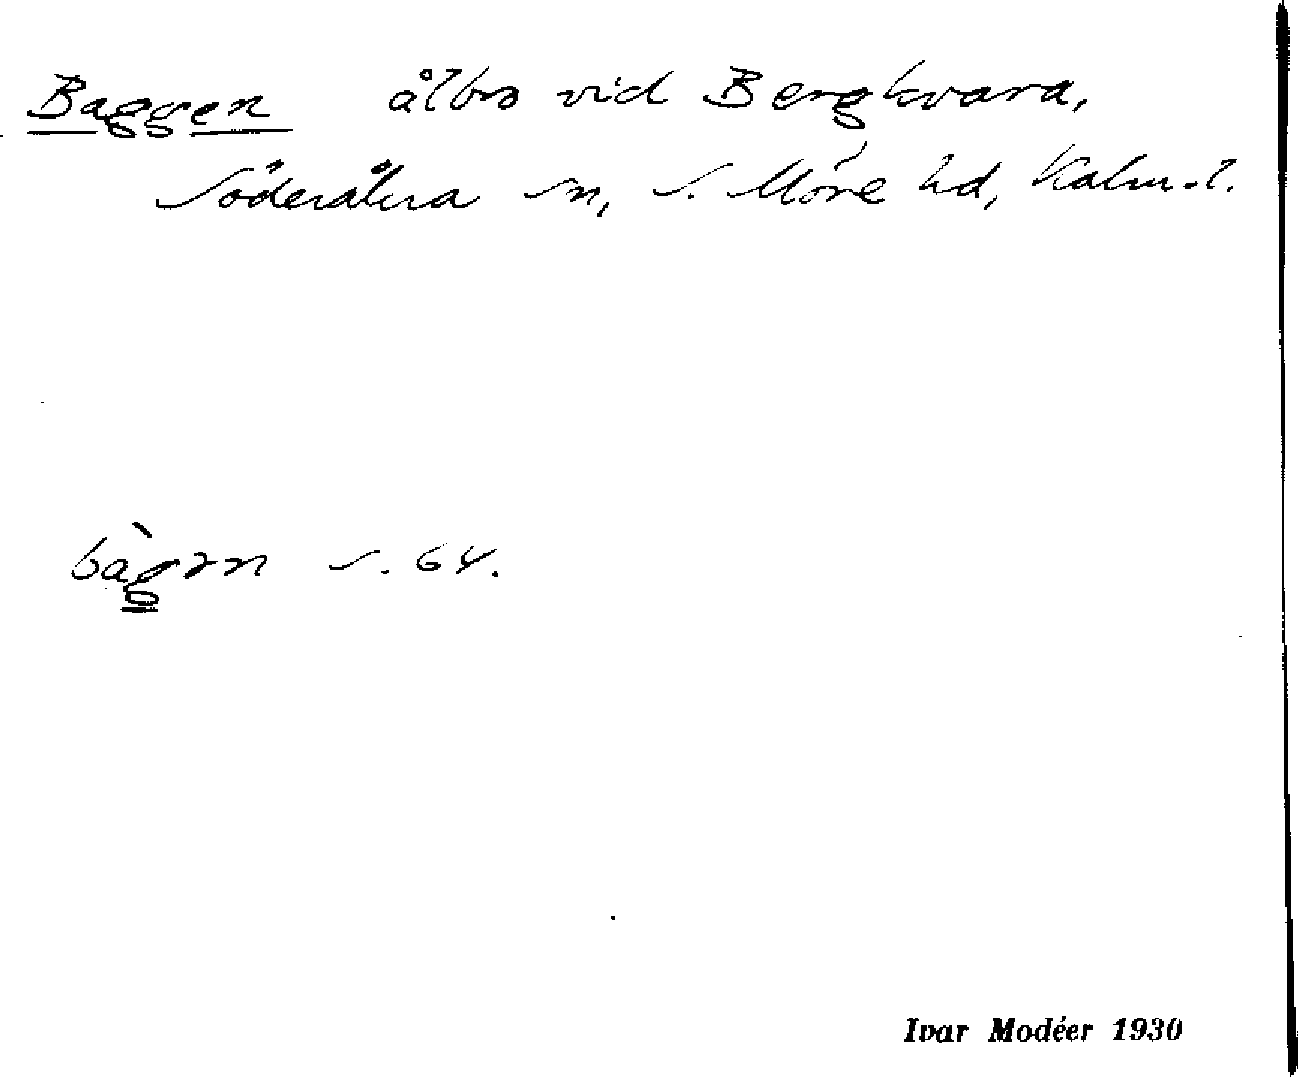 Baggen ålbo vid Bergkvara,
Söderåkra sn, S. Möre hd, Kalm. l.
bàg̱ən s. 64.
Ivar Modéer 1930